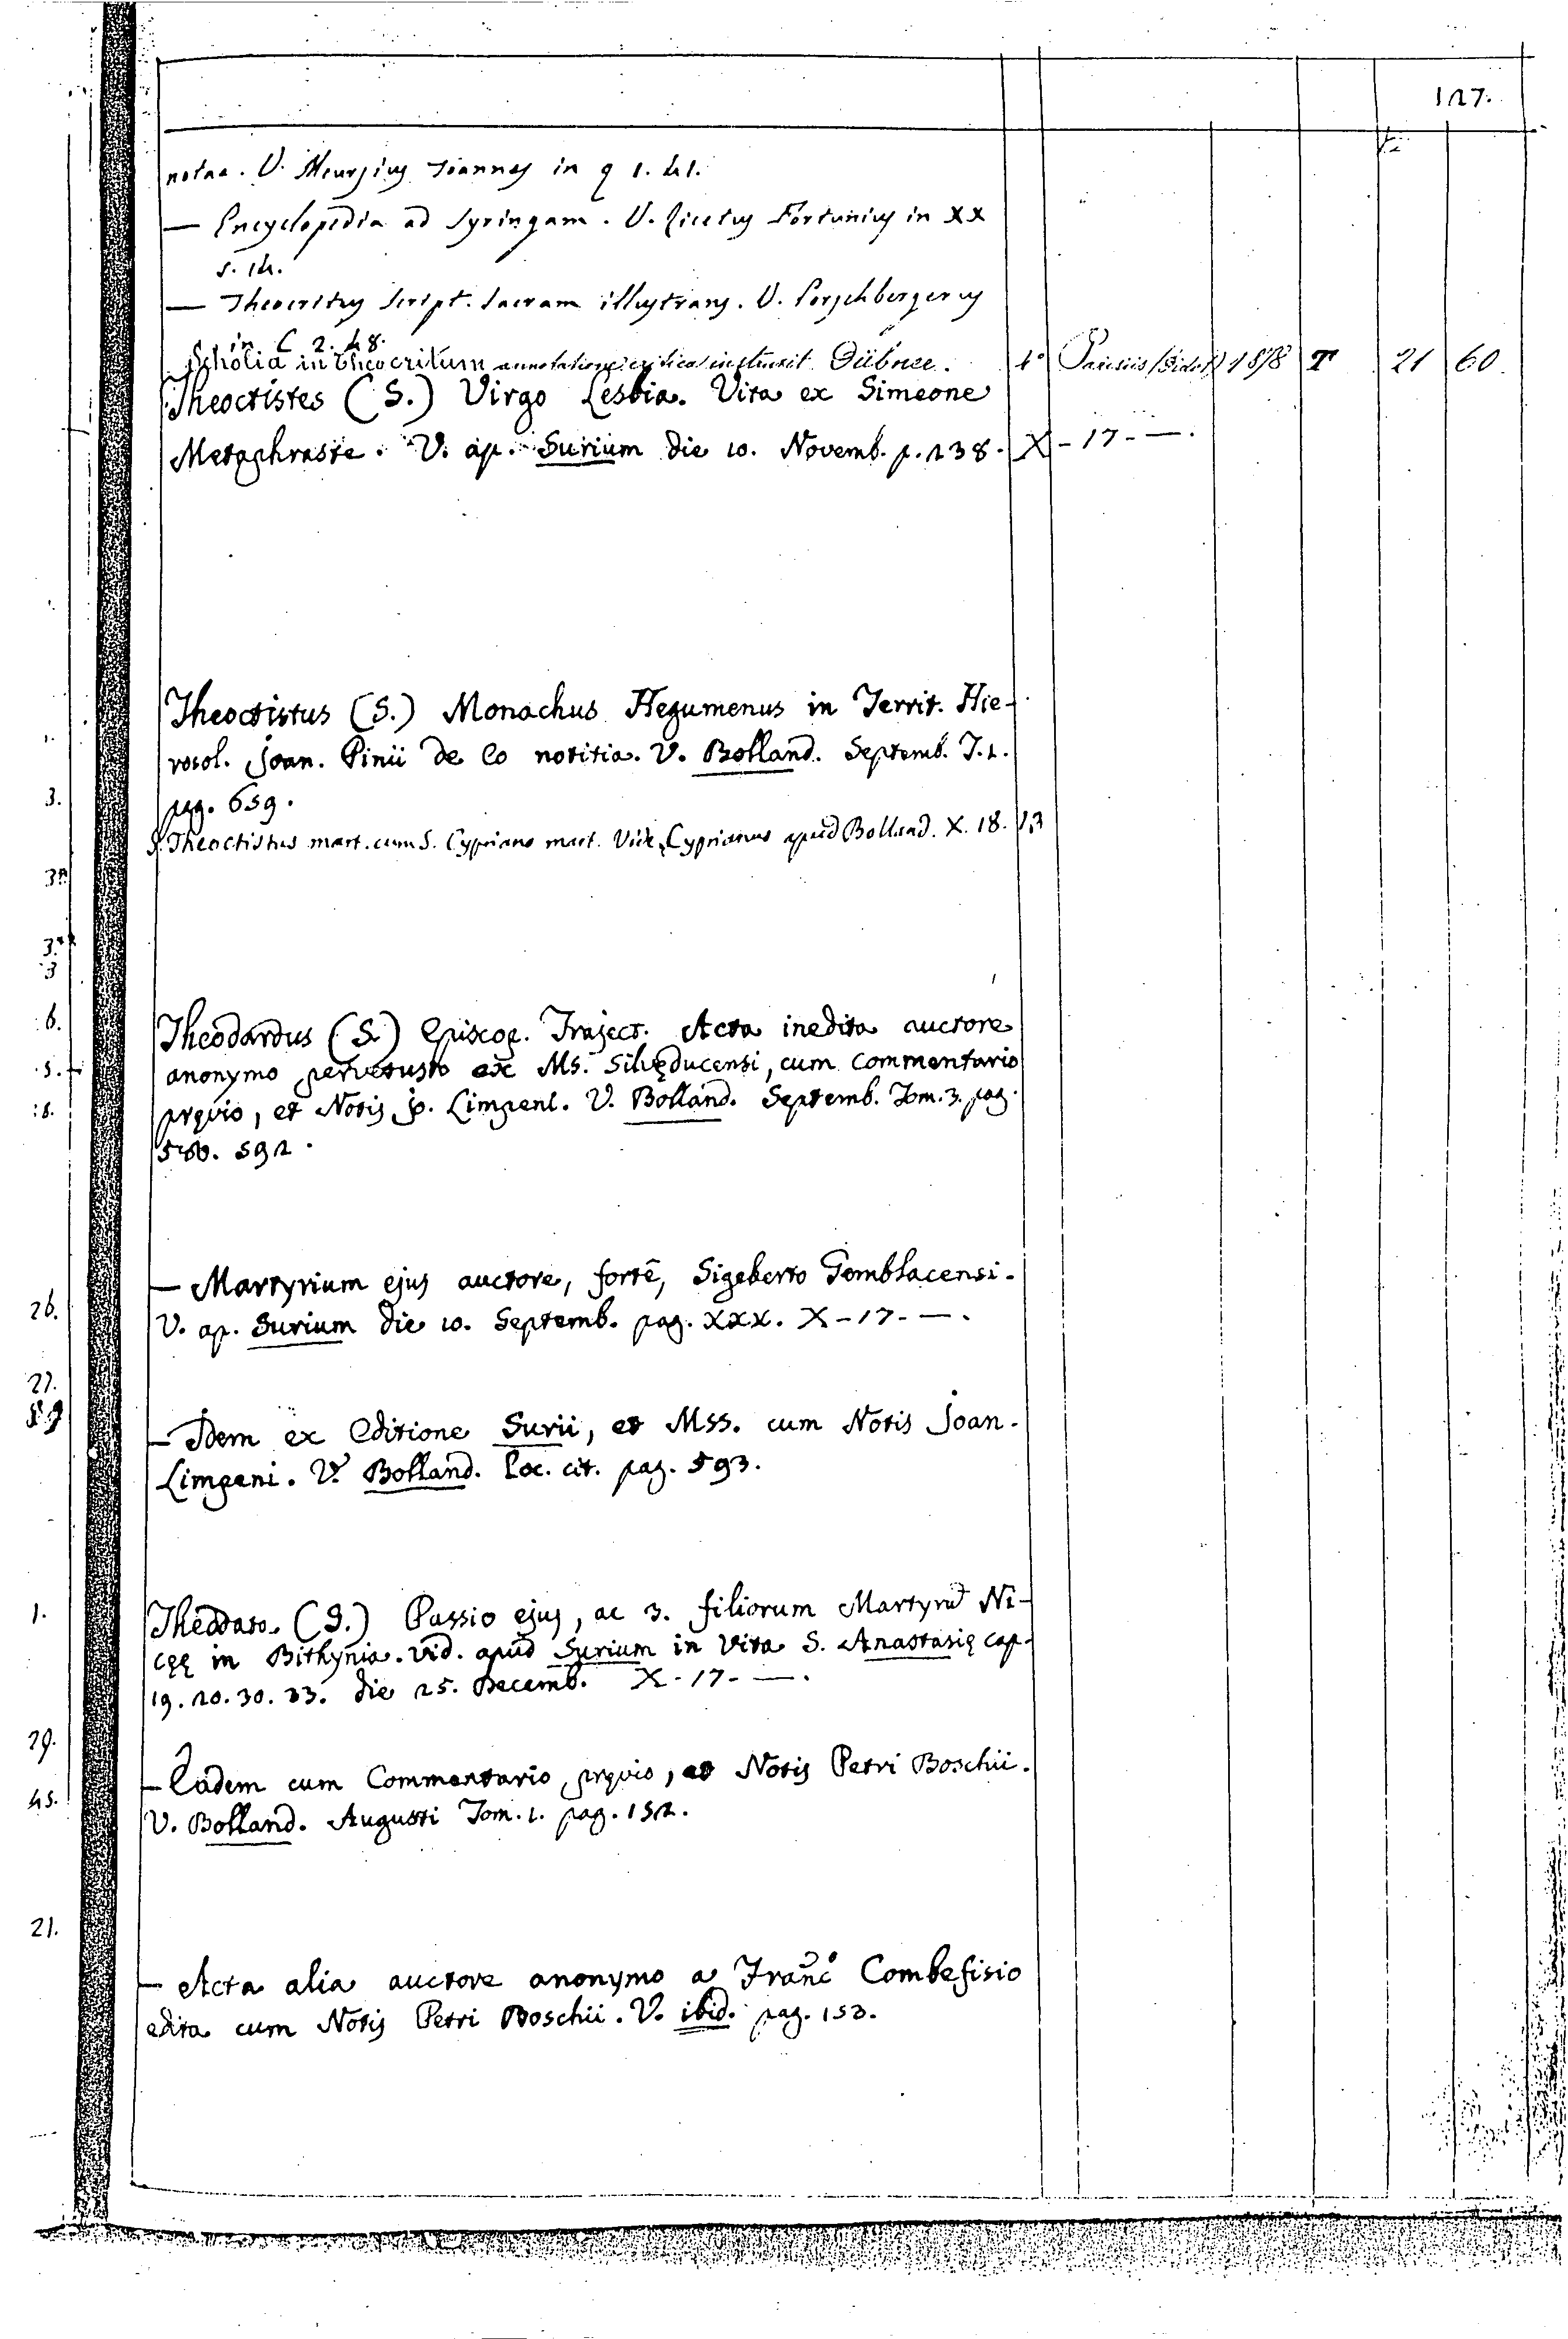 127.
notae. V. Meursius Joannes in q 1. 41.
— Encyclopedia ad Syringam. V. Licetus Fortunius in XX
5. 14.
— Theocritus Script. Sacram illustrans. V. Porschbergerus
in C 2. 48.
Scholia in Theocritum annotatione critica instruxit Dübner. 4° Parisiis (Didot) 1878 T 21 60
Theoctistes (S.) Virgo Lesbia. Vita ex Simeone
Metaphraste. V. ap. Surium die 10. Novemb. p. 238. X - 17 - —.
Theoctistus (S.) Monachus Hegumenus in Territ. Hie-
rosol. Joan. Pinii de Eo notitia. V. Bolland. Septemb. T. 2.
pag. 659.
S. Theoctistus mart. cum S. Cypriano mart. Vide Cyprianus apud Bolland. X. 18. 13
Theodardus (S.) Episcop. Traject. Acta inedita auctore
anonymo pervetusto ex Ms. Silvęducensi, cum commentario
pręvio, et Notis Jo. Limpeni. V. Bolland. Septemb. Tom. 3. pag.
580. 592.
— Martyrium ejus auctore, fortè, Sigeberto Gemblacensi.
V. ap. Surium die 10. Septemb. pag. XXX. X - 17 - —.
— Idem ex Editione Surii, et Mss. cum Notis Joan.
Limpeni. V. Bolland. Loc. cit. pag. 593.
Theodato. (S.) Passio ejus, ac 3. filiorum Martyrū Ni-
cęę in Bithynia. Vid. apud Surium in Vita S. Anastasię cap.
19. 20. 30. 33. die 25. Decemb. X - 17 - —.
— Eadem cum Commentario pręvio, et Notis Petri Boschii.
V. Bolland. Augusti Tom. 1. pag. 152.
— Acta alia auctore anonymo a Franc̄o Combefisio
edita cum Notis Petri Boschii. V. ibid. pag. 153.
3.
3
6.
5.
26.
27.
59
1.
29.
45.
21.